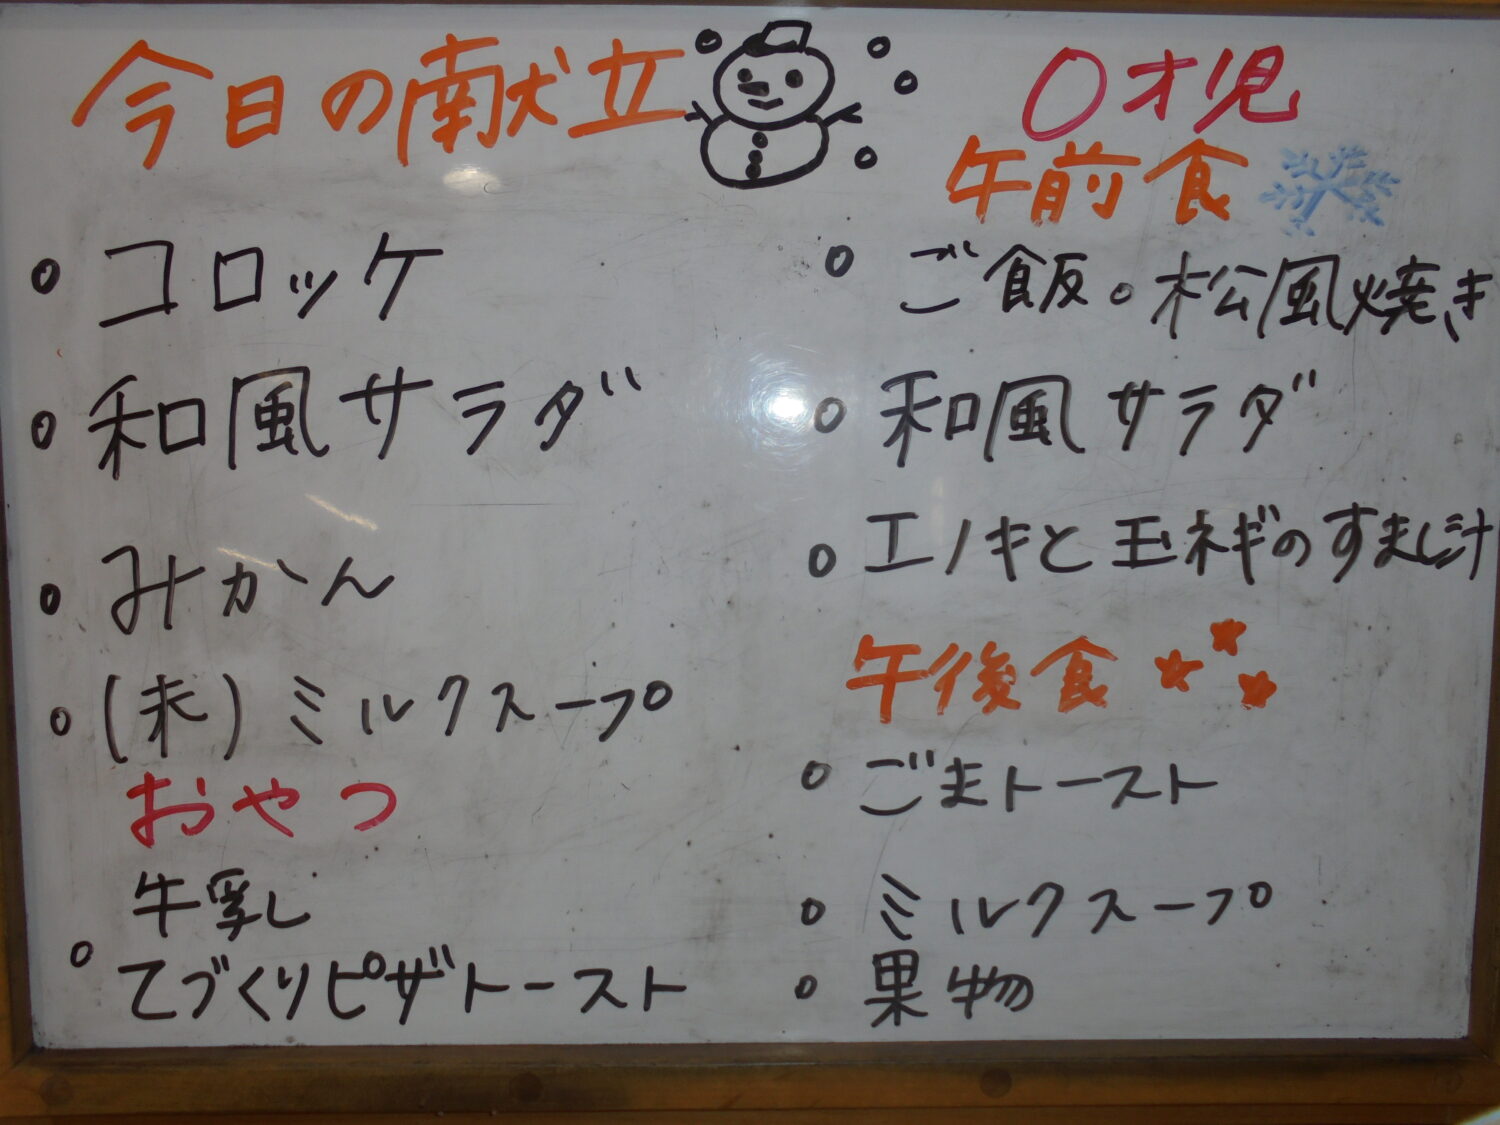 今日の献立
・コロッケ
・和風サラダ
・みかん
・(未)ミルクスープ
おやつ
牛乳
・てづくりピザトースト
0才児
午前食
・ご飯。松風焼き
・和風サラダ
・エノキと玉ネギのすまし汁
午後食
・ごまトースト
・ミルクスープ
・果物